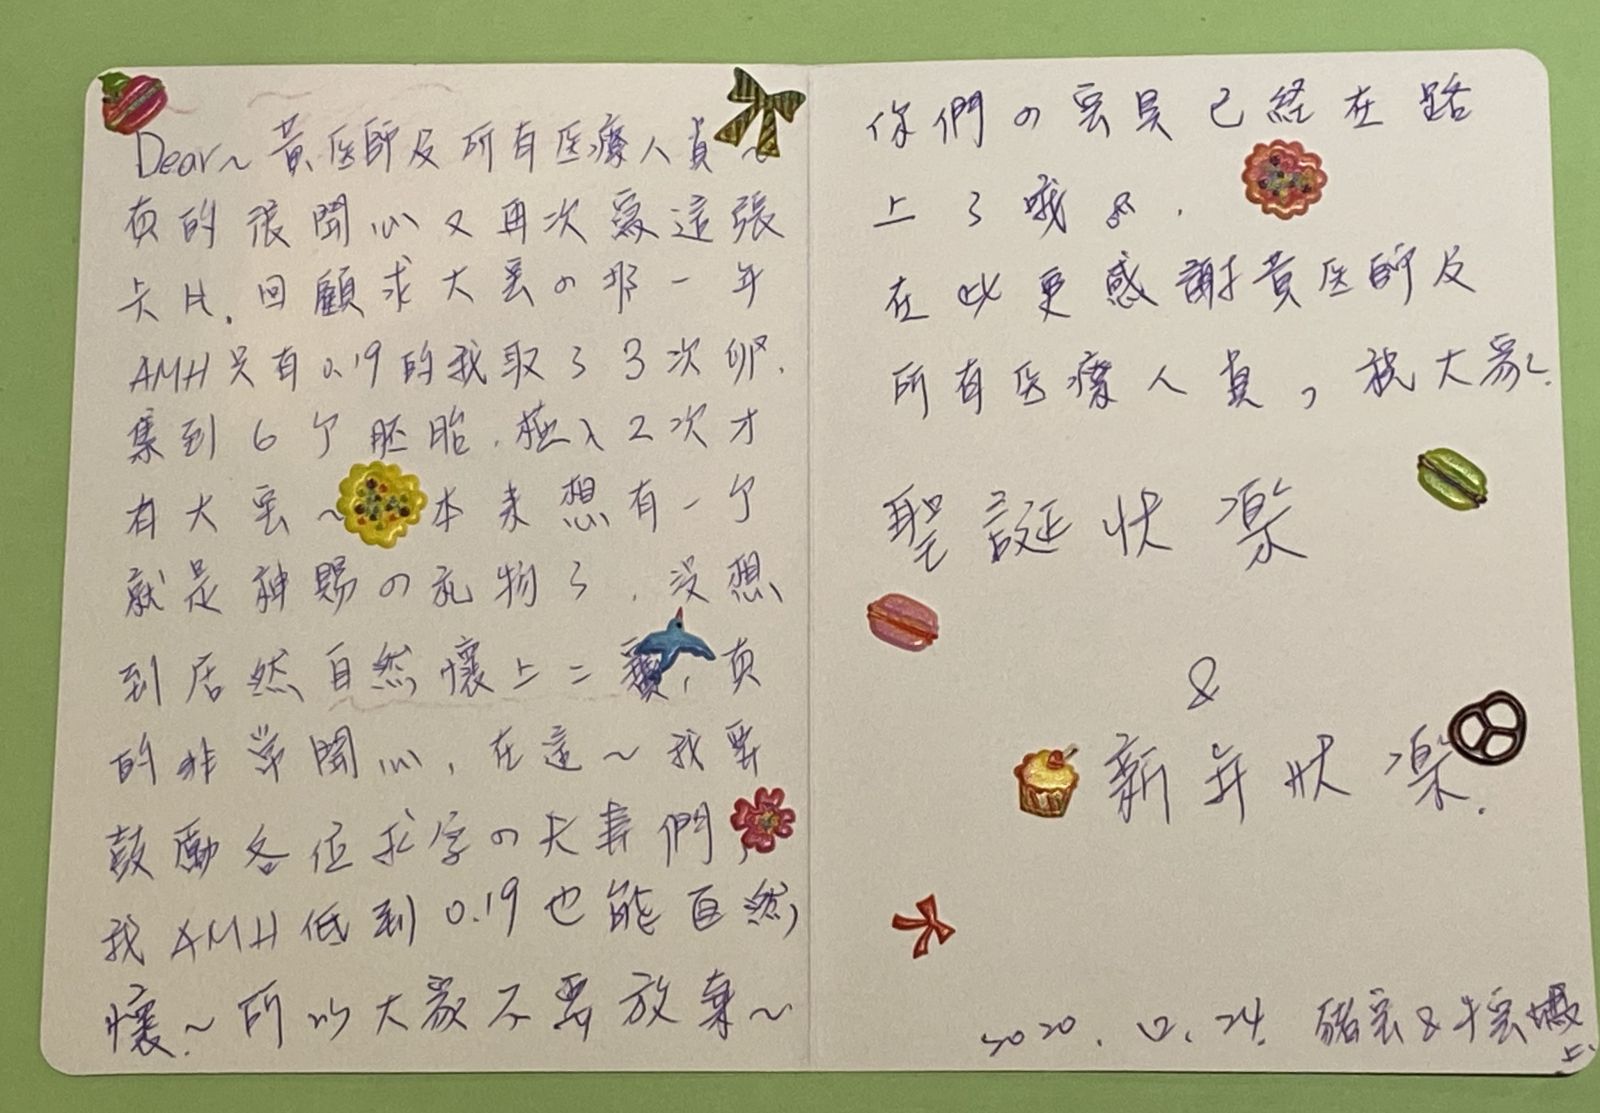 Dear~黃医師及所有医療人員~
真的很開心又再次寫這張
卡片.回顧求大宝の那一年
AMH只有0.19的我取了3次卵.
集到6个胚胎.植入2次才
有大宝~本來想有一个
就是神賜の礼物了.沒想
到居然自然懷上二寶,真
的非常開心,在這~我要
鼓勵各位求子の夫妻們,
我AMH低到0.19也能自然
懷~所以大家不要放棄~
你們の宝貝已経在路
上了哦
在此更感謝黃医師及
所有医療人員,祝大家~
聖誕快樂
&
新年快樂.
2020.12.24. 豬宝&牛宝媽
上.